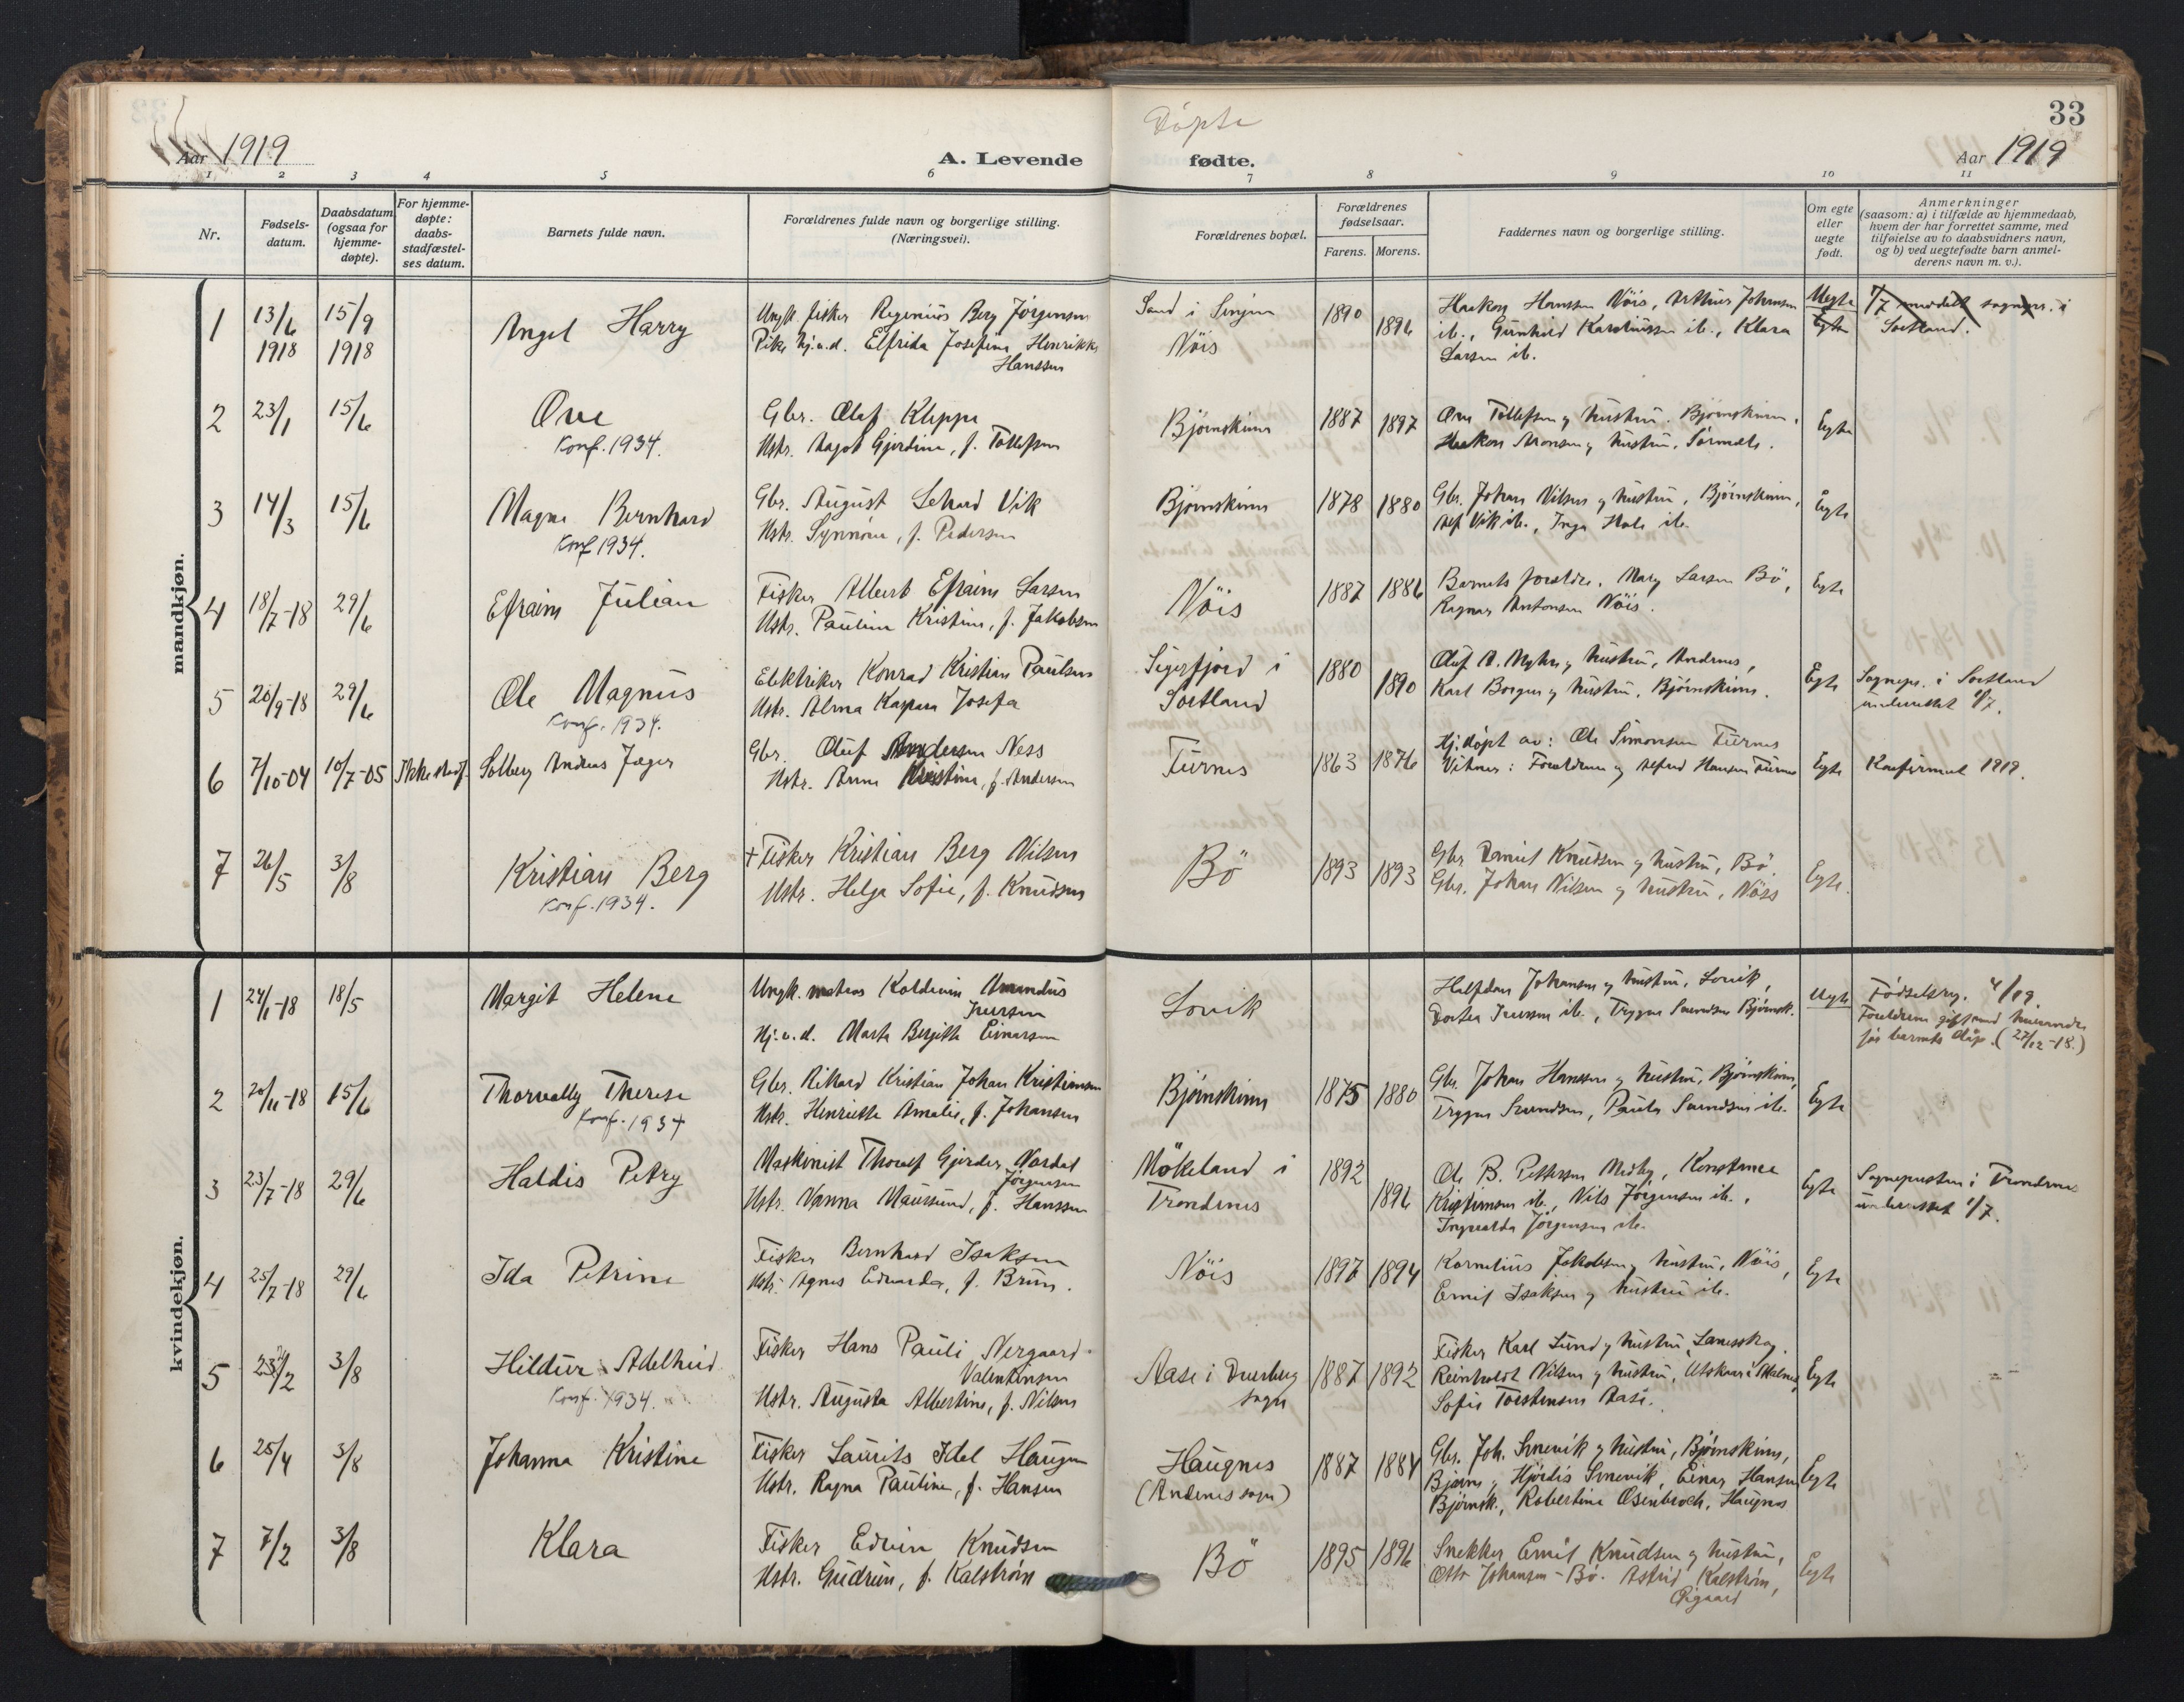 Døpte
33
Aar 1919
A. Levende fødte.
Aar 1919
1 2 3 4 5 6 7 8 9 10 11
Nr.
Fødsels-datum.
Daabsdatum (ogsaa for hjemme-døpte).
For hjemme-døpte: daabs-stadfæstel-ses datum.
Barnets fulde navn.
Forældrenes fulde navn og borgerlige stilling. (Næringsvei).
Forældrenes bopæl.
Forældrenes fødselsaar.
Farens. Morens.
Faddernes navn og borgerlige stilling.
Om egte eller uegte født.
Anmerkninger
(saasom: a) i tilfælde av hjemmedaab,
hvem der har forrettet samme, med
tilføielse av to daabsvidners navn,
og b) ved uegtefødte barn anmel-
derens navn m. v.).
mandkjøn.
1 13/6 1918 15/9 1918 Angel Harry
Ungk. fisker Regenius Berg Jørgensen
Pike hj.v.d. Elfrida Josefine Henrikke
Hanssen
Sand i Senjen
Nöis
1890 1896
Haakon Hanssen Nöis, Arthur Johansen
ib., Gunhild Karoliussen ib., Klara
Larsen ib.
Uegte
Egte
7/7 meddelt sognepr. i
Sortland.
2 23/1 15/6 Ove
Konf. 1934.
Gbr. Olaf Kleppe
Hstr. Aagot Gjerdine, f. Tollefsen
Bjørnskinn
1887 1897
Ove Tollefsen og hustru. Bjørnskinn,
Haakon Aronsen og hustru,
Egte
3 14/3 15/6 Magne Bernhard
Konf 1934.
Gbr. August Vik
Hstr. Synnöve, f. Pedersen
Bjørnskinn
1878 1880
Gbr. Johan Nilsen og hustru, Bjørnskinn,
Alf Vik ib., Inga Hole ib.
Egte
4 18/7-18 29/6 Efraim Julian
Fisker Albert Efraim Larsen
Hstr. Pauline Kristine, f. Jakobsen
Nöis
1887 1886
Barnets foreldre, Mary Larsen Bö,
Ragnar Antonsen Nöis.
Egte
5 20/9-18 29/6 Ole Magnus
Konf. 1934.
Elektriker Konrad Kristian Paulsen
Hstr. Alma Kaspara Josefa
Sigerfjord i
Sortland
1880 1890
Oluf A. Myhre og hustru, Andenes,
Karl Borgen og hustru, Bjørnskinn.
Egte
Sognepr. i Sortland
underrettet 1/7.
6 7/10-04 10/7-05 Ikke stadf. Solberg Andreas Jæger
Gbr. Oluf Andersen Ness
Hstr. Anna Kristine, f. Andersen
Furnes
1863 1876
Hj.døpt av: Ole Simonsen Furnes
Vitner: Foreldrene og Alfred Hansen Furnes
Egte
Konfirmert 1919.
7 26/5 3/8 Kristian Berg
Konf. 1934.
+ Fisker Kristian Berg Nilsen
Hstr. Helga Sofie, f. Knudsen
Bö
1893 1893
Gbr. Daniel Knudsen og hustru, Bö.
Gbr. Johan Nilsen og hustru, Nöss
Egte.
kvindekjøn.
1 24/1-18 18/5 Margit Helene
Ungk. matros Koldevin Amandus
Iversen
Hj.v.d. Marta Bergitte Einarsen
Lovik
Halfdan Johansen og hustru, Lovik,
Dortea Iversen ib., Trygve Svendsen Bjørnsk.
Uegte
Fødselsreg. 4/19.
Foreldrene gift med hverandre
før barnets dåp. (27/12-18.)
2 20/11-18 15/6 Thorvally Therese
Konf. 1934
Gbr. Rikard Kristian Johan Kristiansen
Hstr. Henriette Amalie, f. Johansen
Bjørnskinn
1875 1880
Gbr. Johan Hanssen og hustru, Bjørnskinn,
Trygve Svendsen, Paula Svendsen ib.
Egte
3 23/7-18 29/6 Haldis Petry
Maskinist Thoralf Gjerder Nordal
Jörgensen
Hstr. Nanna Maursund, f. Hanssen
Mökeland i
Trondenes
1892 1896
Ole B. Pettersen Meby, Konstanse
Kristiansen ib., Nils Jörgensen ib.,
Ingvarda Jörgensen ib.
Egte
Sognepresten i Trondenes
underrettet 1/7.
4 25/7-18 29/6 Ida Petrine
Fisker Bernhard Isaksen
Hstr. Agnes Edvarda, f. Brun.
Nöis
1897 1894
Kornelius Jakobsen og hustru, Nöis,
Emil Isaksen og hustru ib.
Egte
5 23/2 3/8 Hildur Adelheid
Konf. 1934.
Fisker Hans Pauli Nergaard
Valentinsen
Hstr. Augusta Albertine, f. Nilsen
Aase i Dverberg
sogn
1887 1892
Fisker Karl Lund og hustru, Lanesskog.
Reinholdt Nilsen og hustru, Utskar i Malnes,
Sofie Torstensen Aase.
Egte
6 25/4 3/8 Johanna Kristine
Fisker Laurits Idel Haugen
Hstr. Ragna Pauline, f. Hansen
Haugnes
(Andenes sogn)
1887 1884
Gbr. Joh. Smevik og hustru, Bjørnskinn,
Bjarne og Hjördis Smevik, Einar Hansen
Bjørnsk., Robertine Osenbroch, Haugnes
Egte
7 7/2 3/8 Klara
Fisker Edvin Knudsen
Hstr. Gudrun, f. Kalstrøm
Bö
1895 1896
Snekker Emil Knudsen og hustru,
Otto Johansen - Bö. Astrid Kalstrøm,
Øigaard
Egte